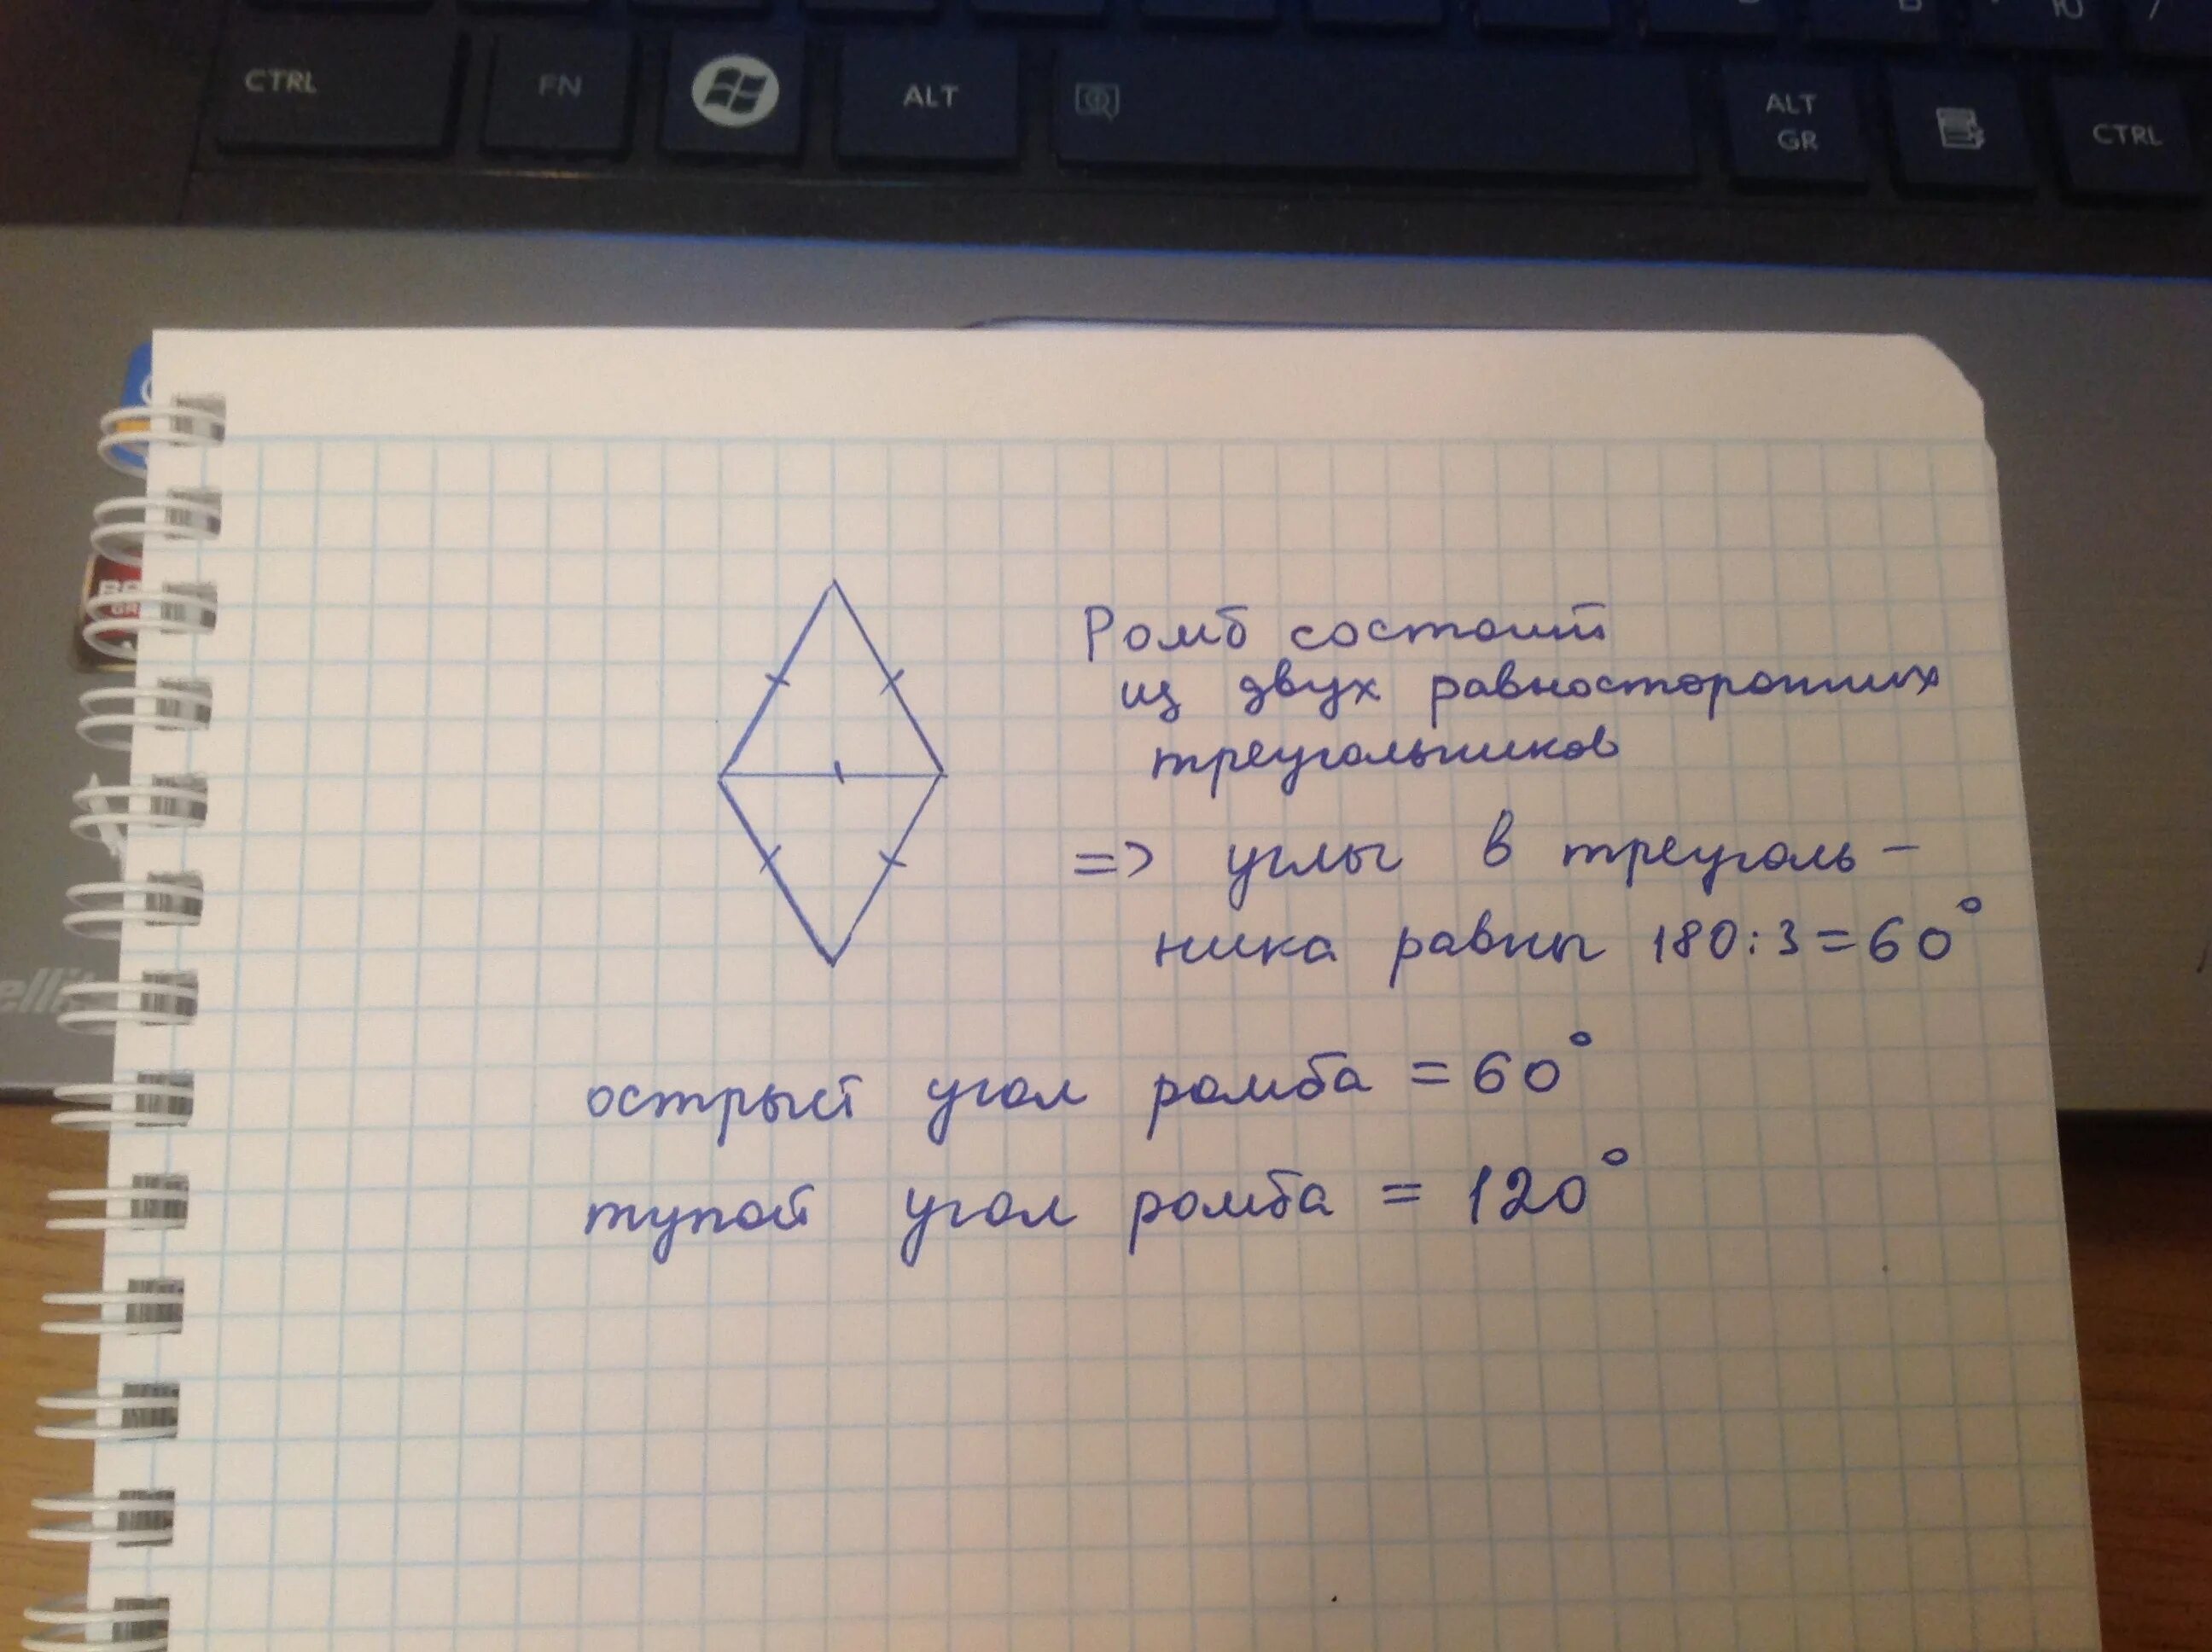 CTRL FN ALT ALT GR CTRL
Ромб состоит
из двух равносторонних
треугольников
=> углы в треуголь-
ника равны 180:3=60°
острый угол ромба = 60°
тупой угол ромба = 120°